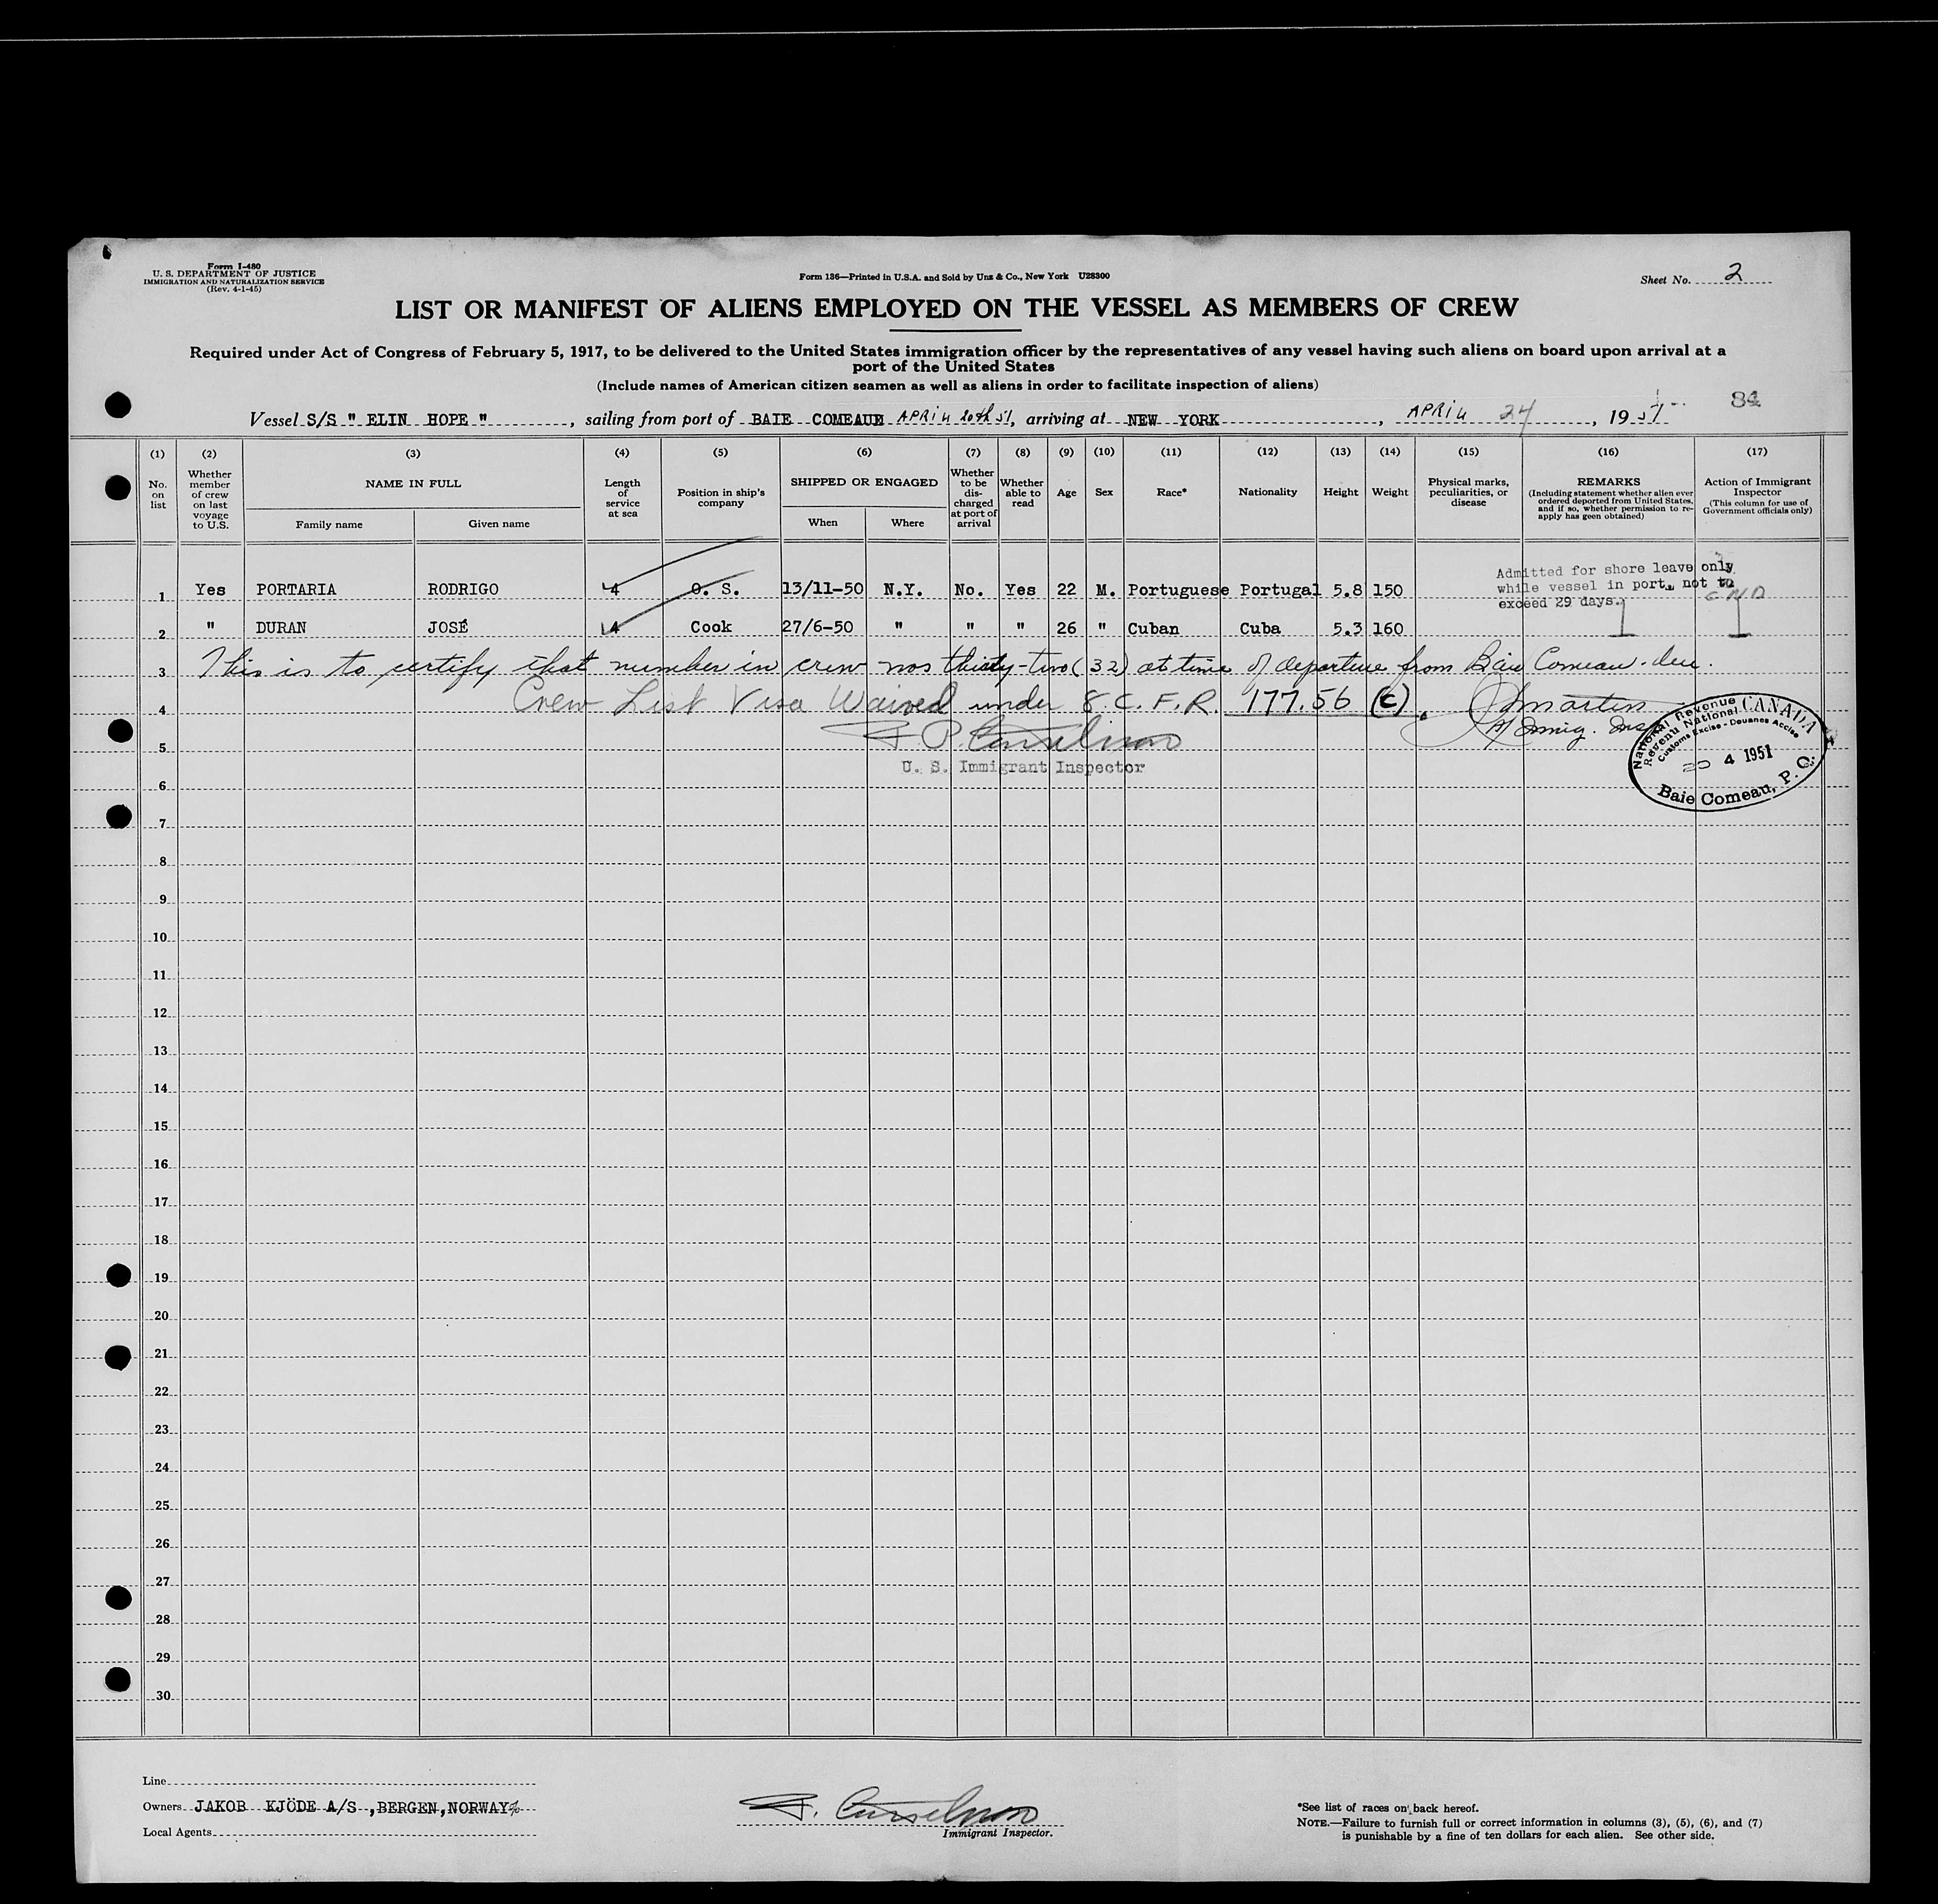 Form I-480
U. S. DEPARTMENT OF JUSTICE
IMMIGRATION AND NATURALIZATION SERVICE
(Rev. 4-1-45)
Form 136—Printed in U.S.A. and Sold by Unz & Co., New York U28300
Sheet No. 2
LIST OR MANIFEST OF ALIENS EMPLOYED ON THE VESSEL AS MEMBERS OF CREW
Required under Act of Congress of February 5, 1917, to be delivered to the United States immigration officer by the representatives of any vessel having such aliens on board upon arrival at a
port of the United States
(Include names of American citizen seamen as well as aliens in order to facilitate inspection of aliens)
Vessel S/S " ELIN HOPE ", sailing from port of BAIE COMEAUE APRIL 20th 51, arriving at NEW YORK, APRIL 24, 1951
(1) (2) (3) (4) (5) (6) (7) (8) (9) (10) (11) (12) (13) (14) (15) (16) (17)
No. on list
Whether member of crew on last voyage to U.S.
NAME IN FULL
Family name
Given name
Length of service at sea
Position in ship's company
SHIPPED OR ENGAGED
When
Where
Whether to be discharged at port of arrival
Whether able to read
Age
Sex
Race*
Nationality
Height
Weight
Physical marks, peculiarities, or disease
REMARKS
(Including statement whether alien ever ordered deported from United States, and if so, whether permission to re-apply has geen obtained)
Action of Immigrant Inspector
(This column for use of Government officials only)
1 Yes PORTARIA RODRIGO 4 O. S. 13/11-50 N.Y. No. Yes 22 M. Portuguese Portugal 5.8 150
Admitted for shore leave only
while vessel in port, not to
exceed 29 days.
2 " DURAN JOSÉ 4 Cook 27/6-50 " " " 26 " Cuban Cuba 5.3 160
3 This is to certify that number in crew was thirty-two (32) at time of departure from Baie Comeau.
4 Crew List Visa Waived under 8 C. F. R. 177.56 (c).
Martin
5
U. S. Immigrant Inspector
National Revenue CANADA
Revenu National
Customs Excise - Douanes Accise
20 4 1951
Baie Comeau, P. Q.
6
7
8
9
10
11
12
13
14
15
16
17
18
19
20
21
22
23
24
25
26
27
28
29
30
Line
Owners JAKOB KJÖDE A/S ,BERGEN,NORWAY
Local Agents
Immigrant Inspector.
*See list of races on back hereof.
NOTE.—Failure to furnish full or correct information in columns (3), (5), (6), and (7)
is punishable by a fine of ten dollars for each alien. See other side.